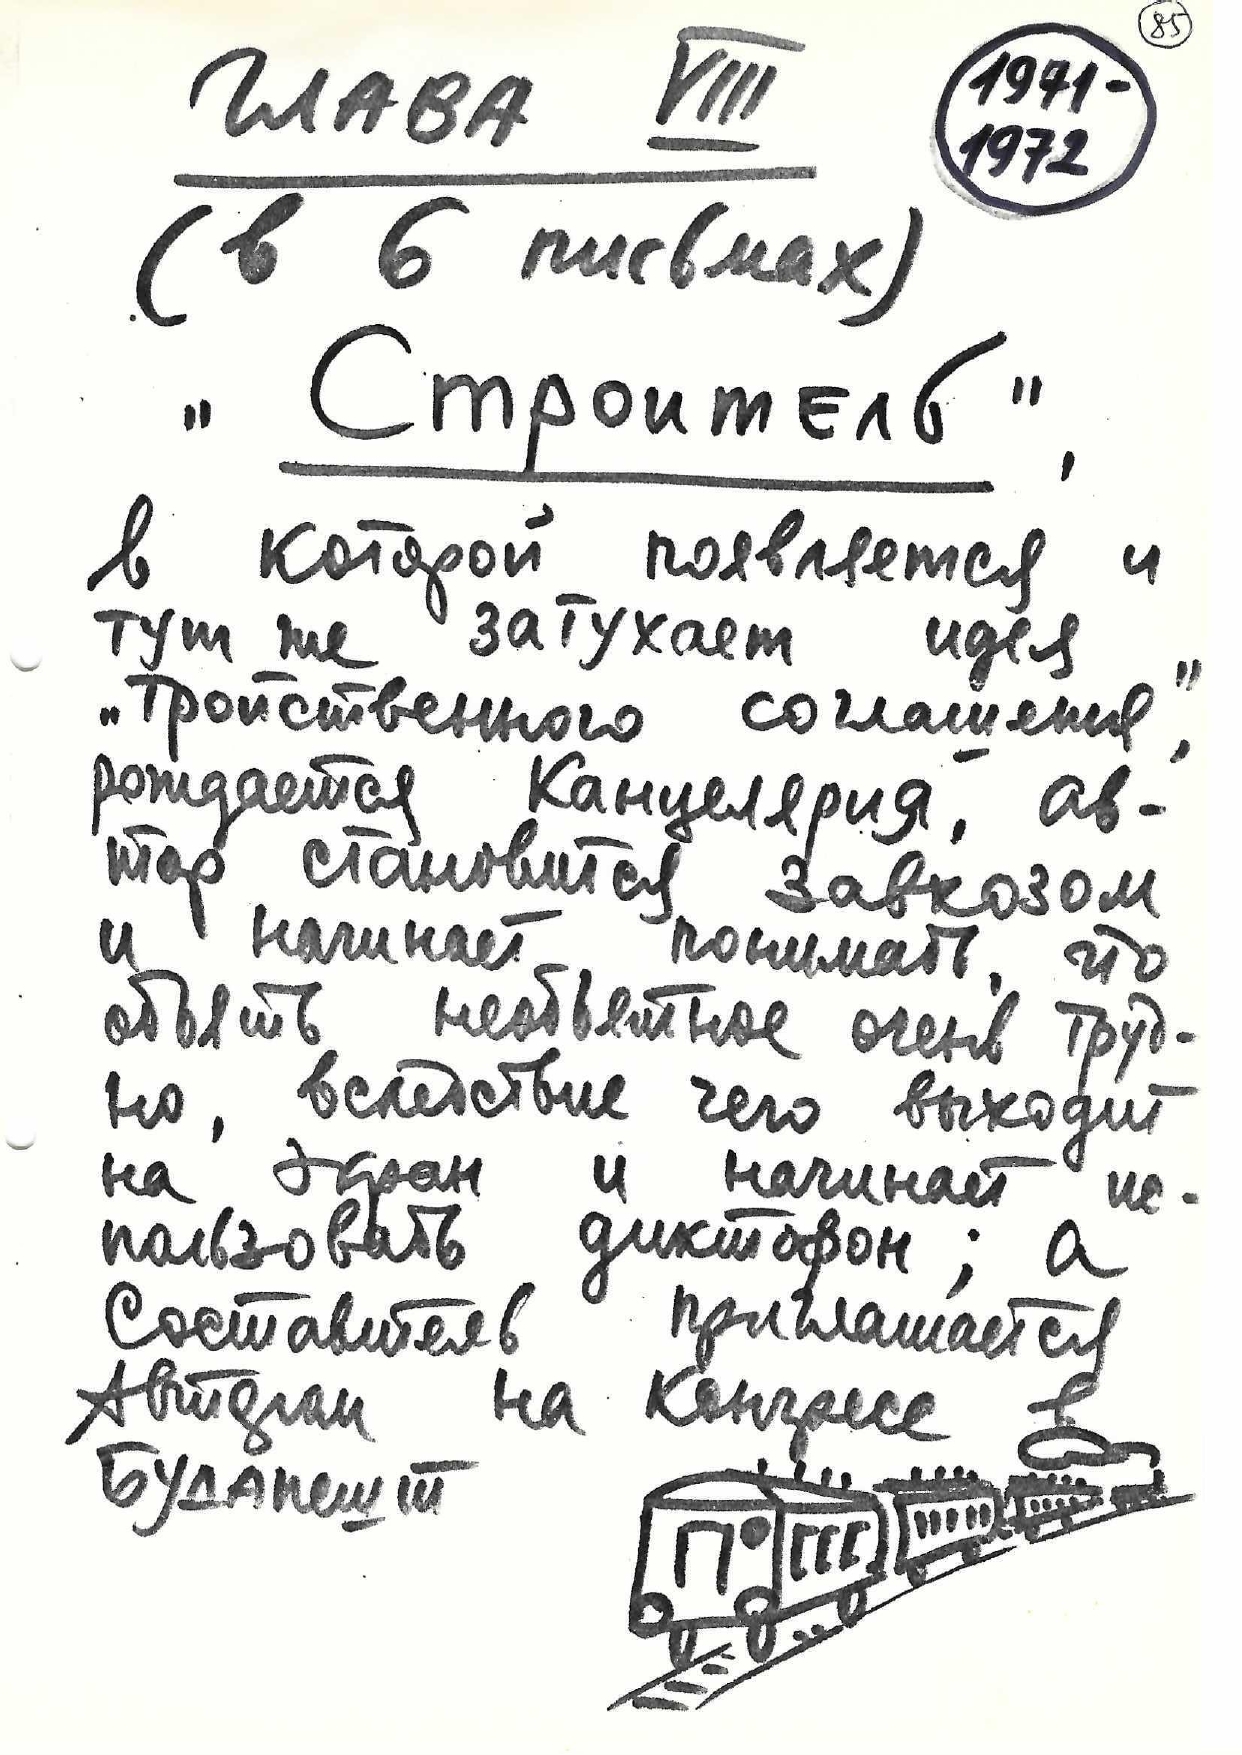 85
ГЛАВА VIII
1971-
1972
(в 6 письмах)
„Строитель",
в которой появляется и
тут же затухает идея
„Тройственного соглашения",
рождается Канцелярия, ав-
тор становится завхозом
и начинает понимать, что
объять необъятное очень труд-
но, вследствие чего выходит
на экран и начинает ис-
пользовать диктофон; а
Составитель приглашается
Автором на Конгресс в
Будапешт